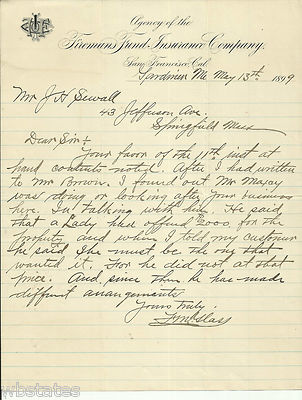 Agency of the
Firemans Fund Insurance Company,
San Francisco, Cal.
Gardiner Me May 13th 1899
Mr J H Sewall
43 Jefferson Ave
Springfield Mass
Dear Sir:
Your favor of the 11th inst at
hand contents noted. After I had written
to Mr Brown. I found out Mr Maxcy
was doing or looking after your business
here. In talking with him. He said
that a Lady had offered $2000, for the
property and when I told my customer
he said she must be the one that
wanted it. For he did not at that
price. And since then he has made
different arrangements
Yours Truly.
wbstates